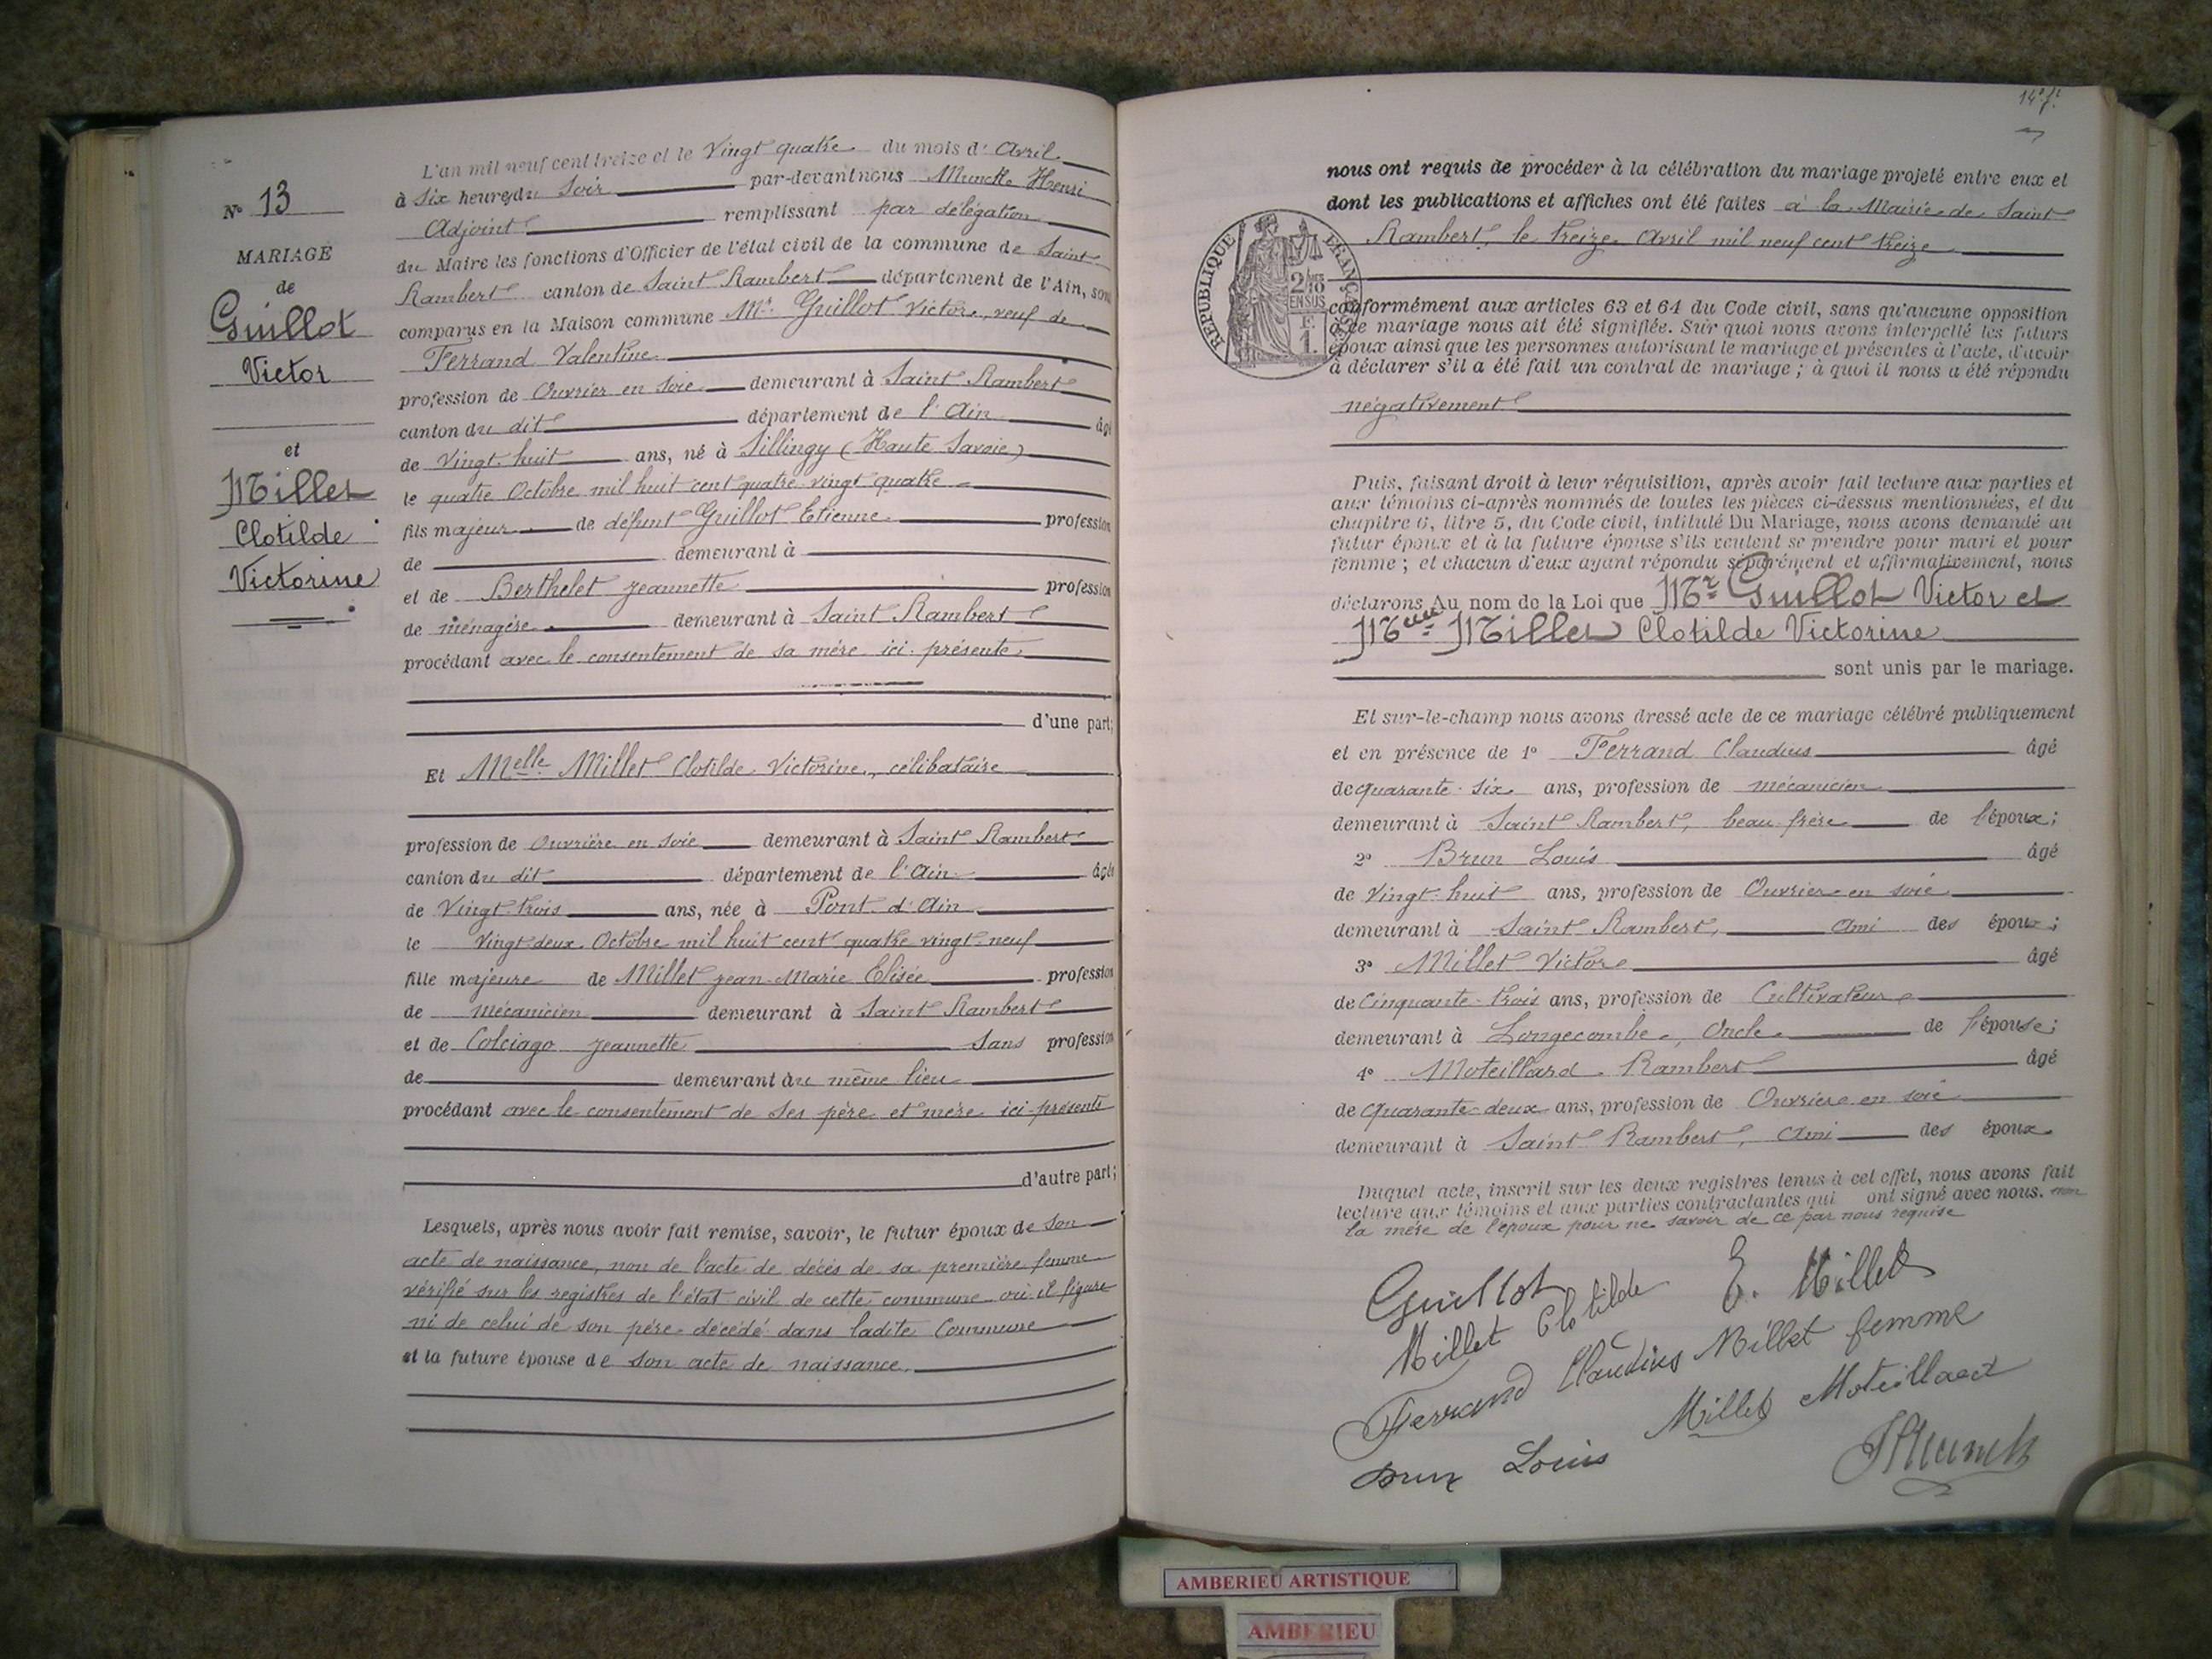 N° 13
MARIAGE
de
Guillot
Victor
et
Millet
Clotilde
Victorine
L'an mil neuf cent treize et le Vingt quatre du mois d' Avril
à Six heures du Soir par-devant nous Henri
Adjoint remplissant par délégation
du Maire les fonctions d'Officier de l'état civil de la commune de Saint
Rambert canton de Saint Rambert département de l'Ain, sont
comparus en la Maison commune Mr Guillot Victor, veuf de
Ferrand Valentine
profession de Ouvrier en soie demeurant à Saint Rambert
canton du dit département de l'Ain âgé
de Vingt-huit ans, né à Sillingy (Haute Savoie)
le quatre Octobre mil huit cent quatre vingt quatre
fils majeur de défunt Guillot Etienne profession
de demeurant à
et de Berthelet Jeannette profession
de ménagère demeurant à Saint Rambert
procédant avec le consentement de sa mère ici présente
d'une part;
Et Melle Millet Clotilde Victorine, célibataire
profession de Ouvrière en soie demeurant à Saint Rambert
canton du dit département de l'Ain âgée
de Vingt-trois ans, née à Pont d'Ain
le Vingt deux Octobre mil huit cent quatre vingt neuf
fille majeure de Millet Jean Marie Elisée profession
de mécanicien demeurant à Saint Rambert
et de Colciago Jeannette Sans profession
de demeurant au même lieu
procédant avec le consentement de ses père et mère ici présents
d'autre part;
Lesquels, après nous avoir fait remise, savoir, le futur époux de son
acte de naissance, non de l'acte de décès de sa première femme
vérifié sur les registres de l'état civil de cette commune où il figure
ni de celui de son père décédé dans ladite Commune
et la future épouse de son acte de naissance.
14e f.
nous ont requis de procéder à la célébration du mariage projeté entre eux et
dont les publications et affiches ont été faites à la Mairie de Saint
Rambert, le treize Avril mil neuf cent treize
REPUBLIQUE FRANÇAISE
2/10
EN SUS
F.
1.
conformément aux articles 63 et 64 du Code civil, sans qu'aucune opposition
à ce mariage nous ait été signifiée. Sur quoi nous avons interpellé les futurs
époux ainsi que les personnes autorisant le mariage et présentes à l'acte, d'avoir
à déclarer s'il a été fait un contrat de mariage ; à quoi il nous a été répondu
négativement
Puis, faisant droit à leur réquisition, après avoir fait lecture aux parties et
aux témoins ci-après nommés de toutes les pièces ci-dessus mentionnées, et du
chapitre 6, titre 5, du Code civil, intitulé Du Mariage, nous avons demandé au
futur époux et à la future épouse s'ils veulent se prendre pour mari et pour
femme ; et chacun d'eux ayant répondu séparément et affirmativement, nous
déclarons Au nom de la Loi que Mr Guillot Victor et
Melle Millet Clotilde Victorine
sont unis par le mariage.
Et sur-le-champ nous avons dressé acte de ce mariage célébré publiquement
et en présence de 1° Ferrand Claudius âgé
de quarante-six ans, profession de mécanicien
demeurant à Saint Rambert, beau-frère de l'époux;
2° Brun Louis âgé
de Vingt-huit ans, profession de Ouvrier en soie
demeurant à Saint Rambert, ami des époux;
3° Millet Victor âgé
de Cinquante-trois ans, profession de Cultivateur
demeurant à Longecombe, Oncle de l'épouse;
4° Moteillard Rambert âgé
de quarante-deux ans, profession de Ouvrier en soie
demeurant à Saint Rambert, Ami des époux
Duquel acte, inscrit sur les deux registres tenus à cet effet, nous avons fait
lecture aux témoins et aux parties contractantes qui ont signé avec nous. non
la mère de l'époux pour ne savoir de ce par nous requise
Guillot
Millet Clotilde E. Millet
Ferrand Claudius Millet femme
Brun Louis Millet Moteillard
AMBERIEU ARTISTIQUE
AMBERIEU